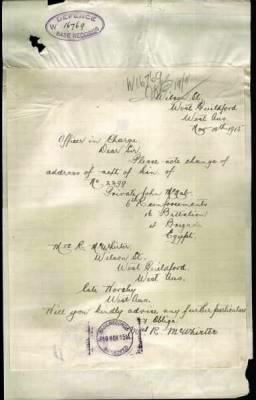 DEFENCE
W 16769
BASE RECORDS
W16769
Wilson St,
West Guildford
West Aus.
Nov 10th 1915
Officer in Charge
Dear Sir,
Please note change of
address of next of kin of
No. 2299
Private John
6th Reinforcements
16 Battalion
4 Brigade
Egypt.
Mrs R. McWhirter
Wilson St.
West Guildford,
West Aus.
Late
West Aus.
Will you kindly advise any further particulars
& Oblige
Mrs R. McWhirter